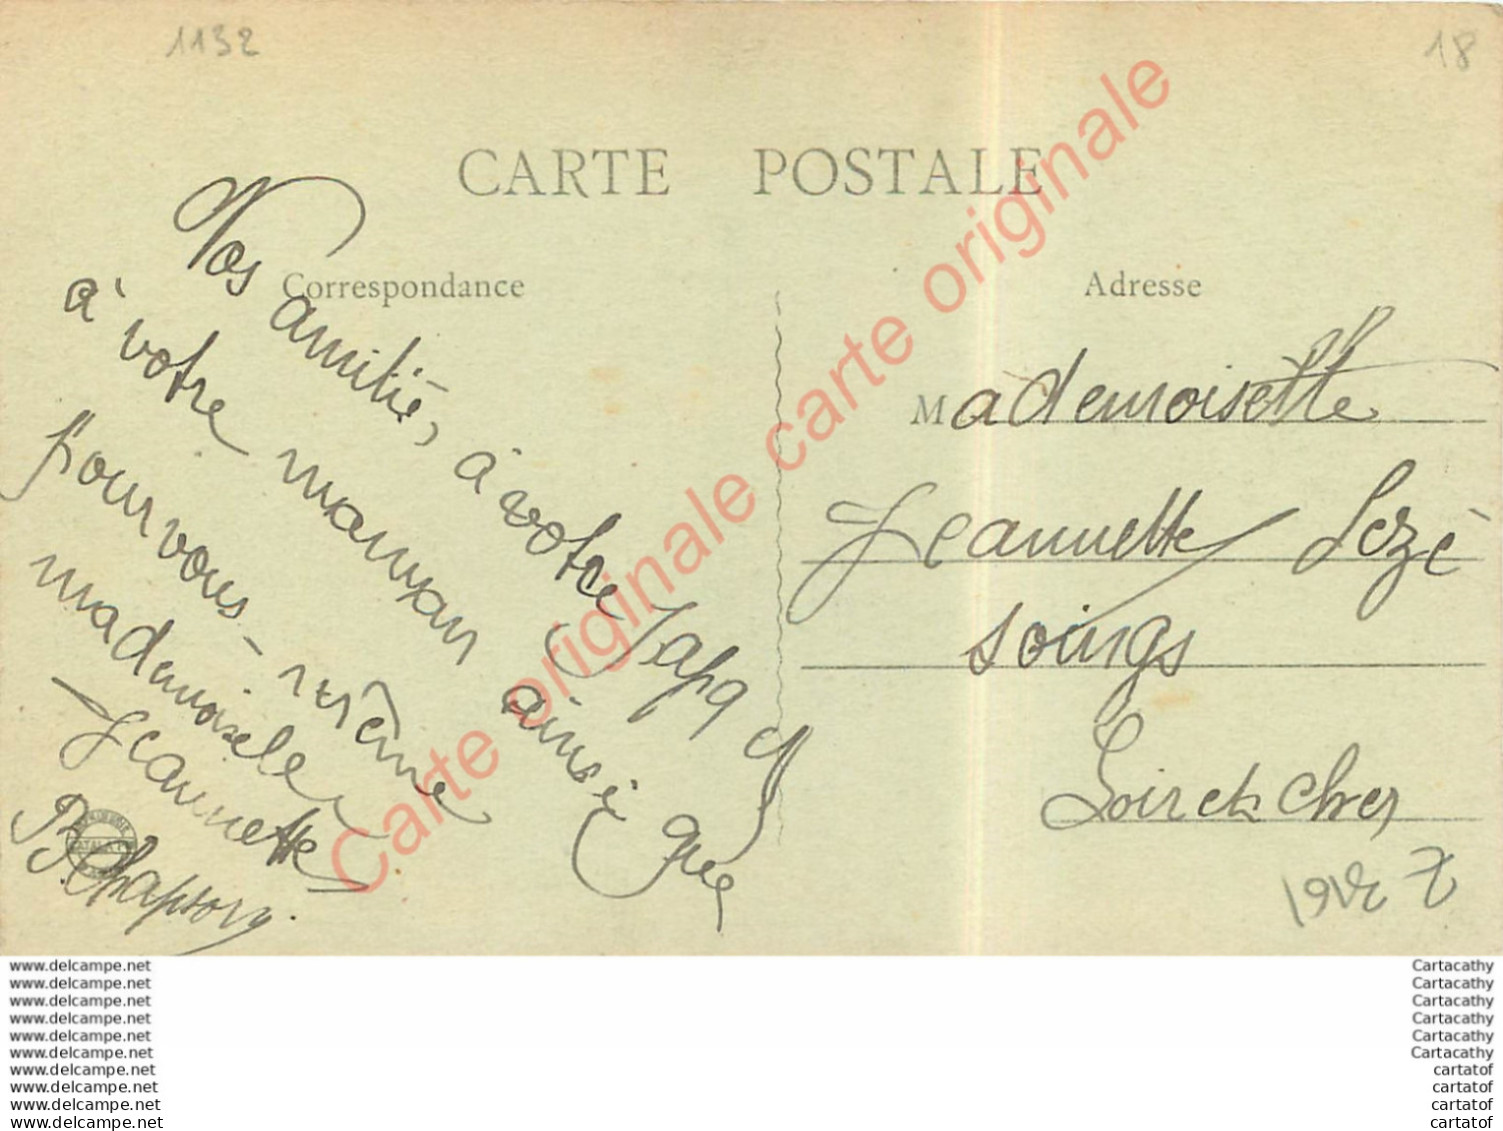 1132
18
CARTE POSTALE
Correspondance
Adresse
Vos amitié, à votre Papa
à votre maman ainsi que
pour vous-même
mademoiselle
Jeannette
Mademoiselle
Jeannette Sezé
Soings
Loir et Cher
Carte originale carte originale
www.delcampe.net
www.delcampe.net
www.delcampe.net
www.delcampe.net
www.delcampe.net
www.delcampe.net
www.delcampe.net
www.delcampe.net
www.delcampe.net
www.delcampe.net
Cartacathy
Cartacathy
Cartacathy
Cartacathy
Cartacathy
Cartacathy
cartatof
cartatof
cartatof
cartatof